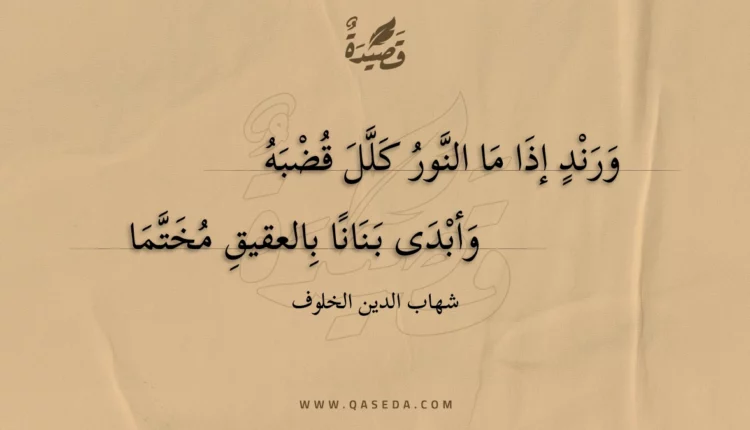 قَصِيدَةٌ
وَرَنْدٍ إذَا مَا النَّورُ كَلَّلَ قُضْبَهُ
وَأبْدَى بَنَانًا بِالعقيقِ مُخَتَّمَا
شهاب الدين الخلوف
WWW.QASEDA.COM